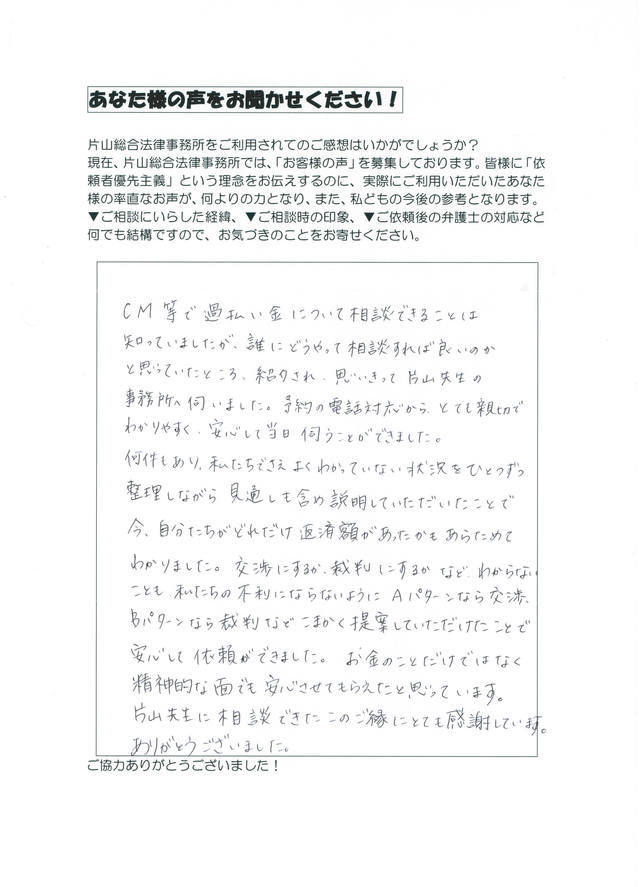 あなた様の声をお聞かせください！
片山総合法律事務所をご利用されてのご感想はいかがでしょうか？
現在、片山総合法律事務所では、「お客様の声」を募集しております。皆様に「依
頼者優先主義」という理念をお伝えするのに、実際にご利用いただいたあなた
様の率直なお声が、何よりの力となり、また、私どもの今後の参考となります。
▼ご相談にいらした経緯、▼ご相談時の印象、▼ご依頼後の弁護士の対応など
何でも結構ですので、お気づきのことをお寄せください。
CM等で過払い金について相談できることは
知っていましたが、誰にどうやって相談すれば良いのか
と思っていたところ、紹介され、思いきって片山先生の
事務所へ伺いました。予約の電話対応から、とても親切で
わかりやすく、安心して当日伺うことができました。
何件もあり、私たちでさえよくわかっていない状況をひとつずつ
整理しながら見通しも含め説明していただいたことで
今、自分たちがどれだけ返済額があったかもあらためて
わかりました。交渉にするか、裁判にするかなど、わからない
ことも、私たちの不利にならないようにAパターンなら交渉、
Bパターンなら裁判などこまかく提案していただけたことで
安心して依頼ができました。お金のことだけではなく
精神的な面でも安心させてもらえたと思っています。
片山先生に相談できたこのご縁にとても感謝しています。
ありがとうございました。
ご協力ありがとうございました！